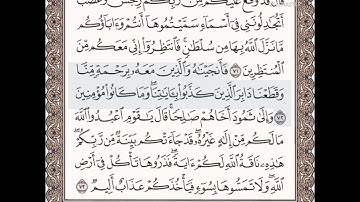 قَالَ قَدْ وَقَعَ عَلَيْكُم مِّن رَّبِّكُمْ رِجْسٌ وَغَضَبٌ
أَتُجَٰدِلُونَنِى فِىٓ أَسْمَآءٍ سَمَّيْتُمُوهَآ أَنتُمْ وَءَابَآؤُكُم
مَّا نَزَّلَ ٱللَّهُ بِهَا مِن سُلْطَٰنٍ ۚ فَٱنتَظِرُوٓا۟ إِنِّى مَعَكُم مِّنَ
ٱلْمُنتَظِرِينَ ٧١ فَأَنجَيْنَٰهُ وَٱلَّذِينَ مَعَهُۥ بِرَحْمَةٍ مِّنَّا
وَقَطَعْنَا دَابِرَ ٱلَّذِينَ كَذَّبُوا۟ بِـَٔايَٰتِنَا ۖ وَمَا كَانُوا۟ مُؤْمِنِينَ
٧٢ وَإِلَىٰ ثَمُودَ أَخَاهُمْ صَٰلِحًا ۗ قَالَ يَٰقَوْمِ ٱعْبُدُوا۟ ٱللَّهَ
مَا لَكُم مِّنْ إِلَٰهٍ غَيْرُهُۥ ۖ قَدْ جَآءَتْكُم بَيِّنَةٌ مِّن رَّبِّكُمْ ۖ
هَٰذِهِۦ نَاقَةُ ٱللَّهِ لَكُمْ ءَايَةً ۖ فَذَرُوهَا تَأْكُلْ فِىٓ أَرْضِ
ٱللَّهِ ۖ وَلَا تَمَسُّوهَا بِسُوٓءٍ فَيَأْخُذَكُمْ عَذَابٌ أَلِيمٌ ٧٣